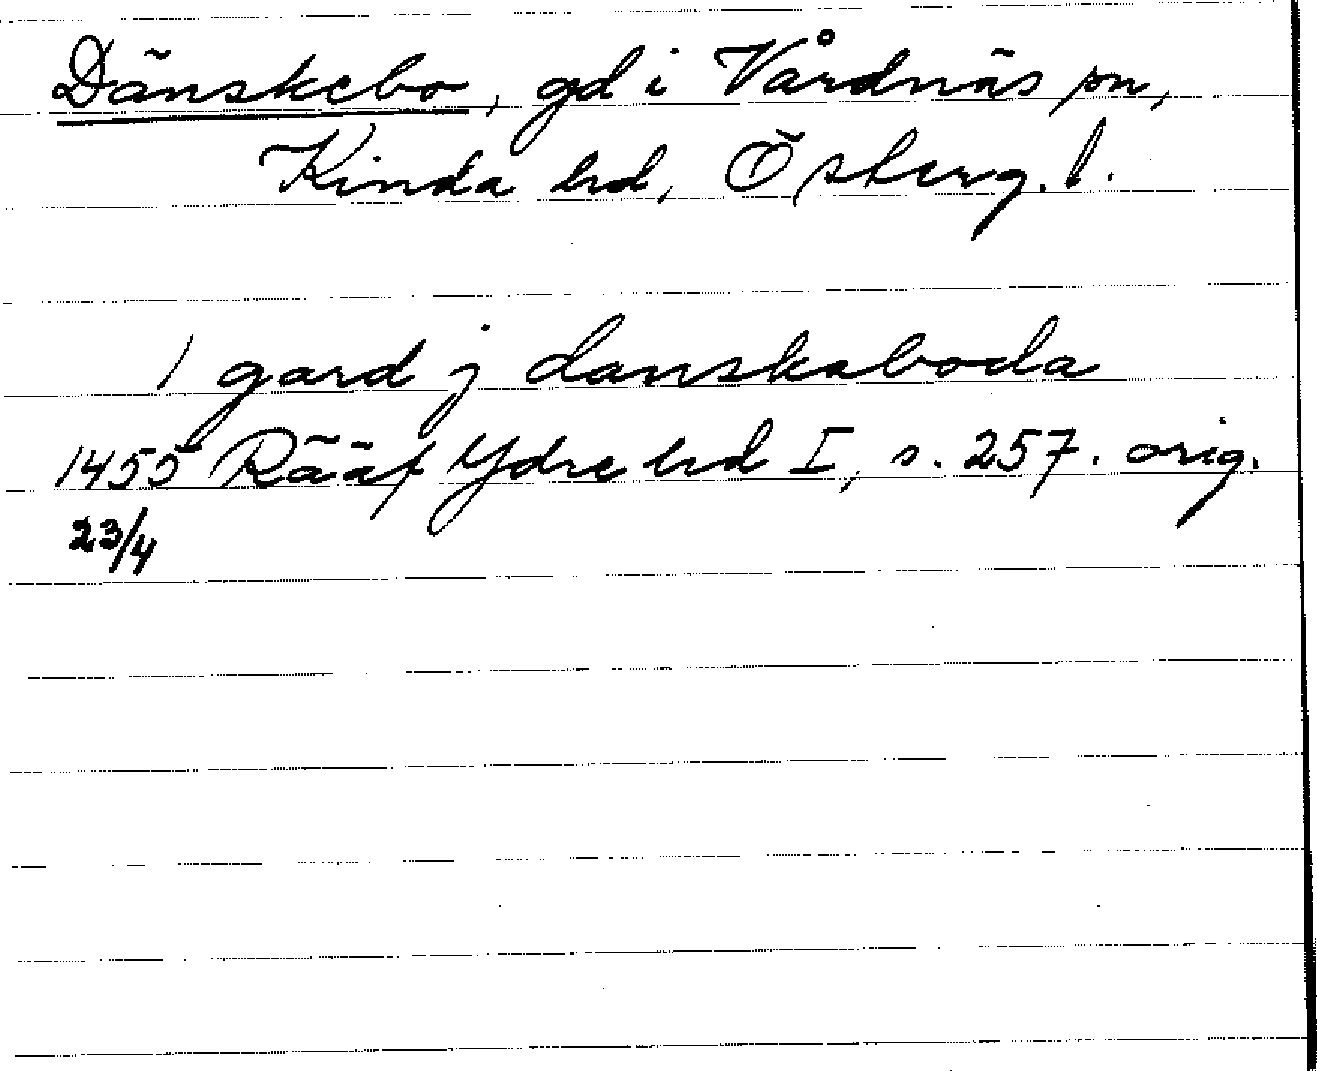 Dänskebo, gd i Vårdnäs sn,
Kinda hd, Österg. l.
1 gard j danskaboda
1455 Rääf Ydre hd I, s. 257. orig.
23/4